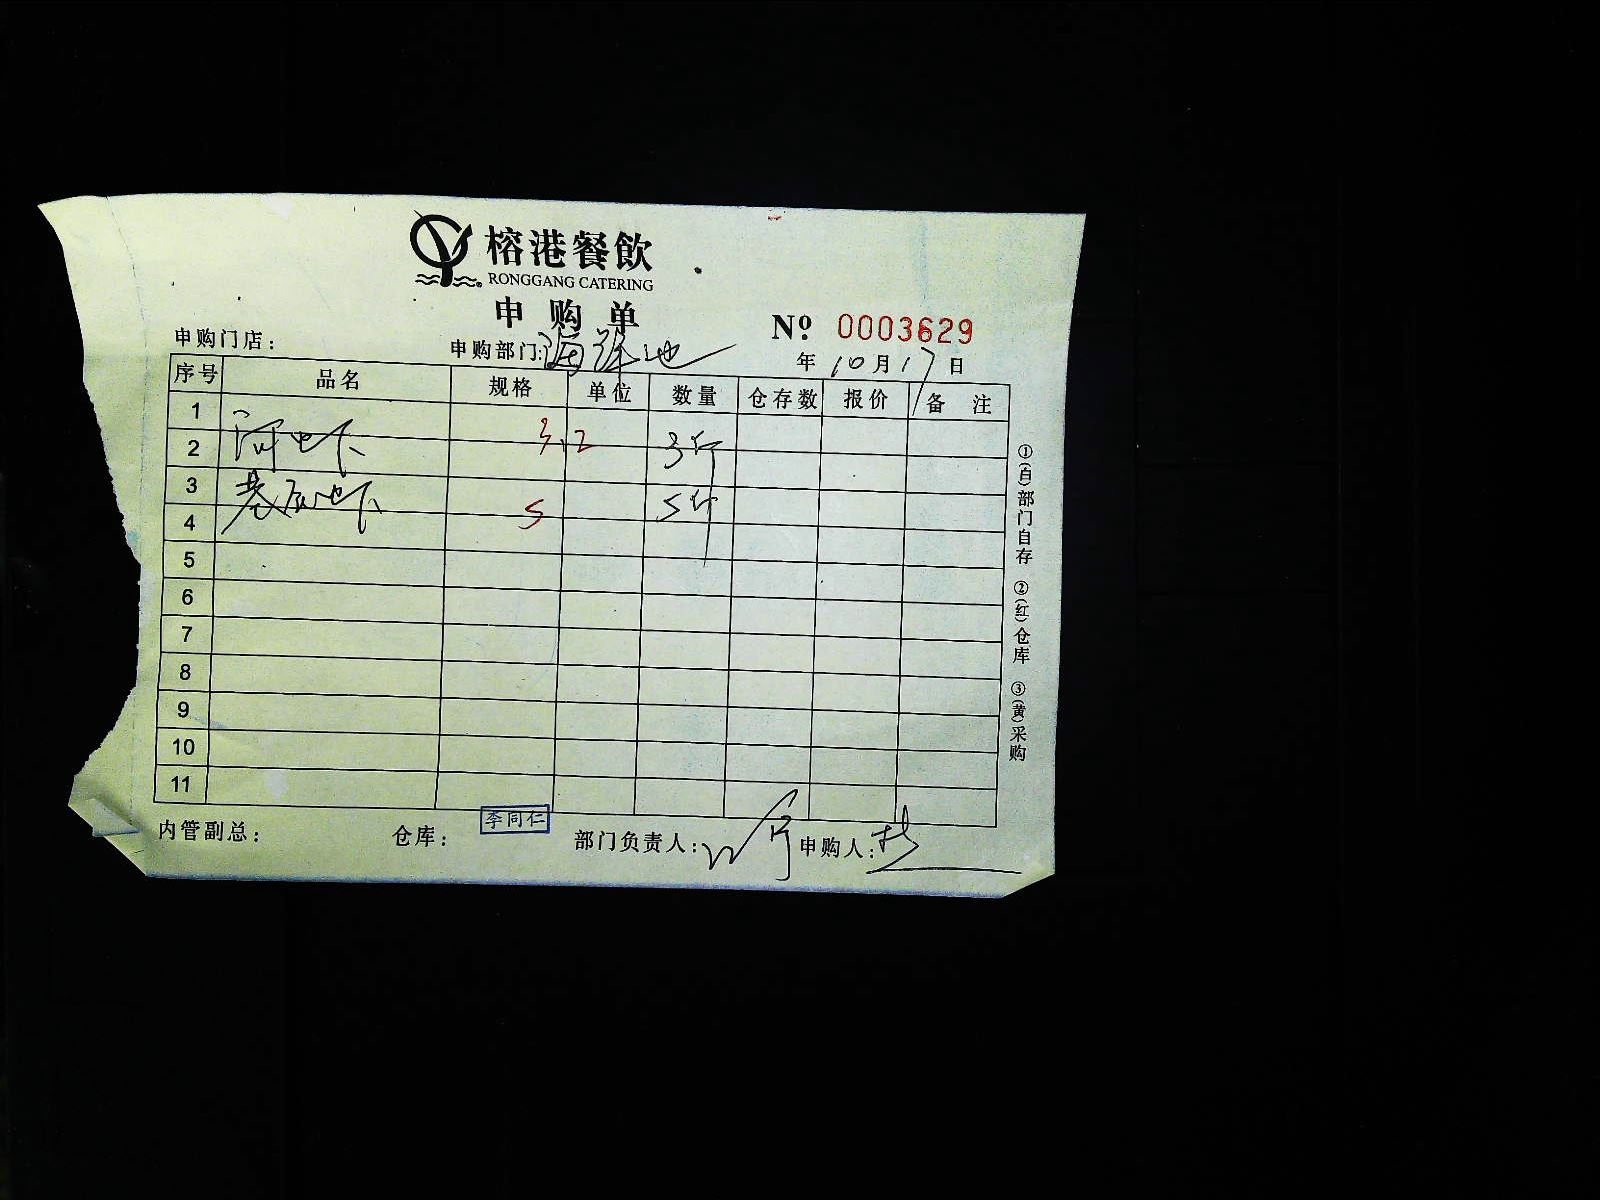 榕港餐飲
RONGGANG CATERING
申购单
Nº 0003629
申购门店： 申购部门：海鲜池 年 10 月 17 日
序号 品名 规格 单位 数量 仓存数 报价 备注
1
2 河虾 3.2 3斤
3
4 5 5斤
5
6
7
8
9
10
11
内管副总： 仓库： 李同仁 部门负责人： 申购人：
①(白)部门自存 ②(红)仓库 ③(黄)采购